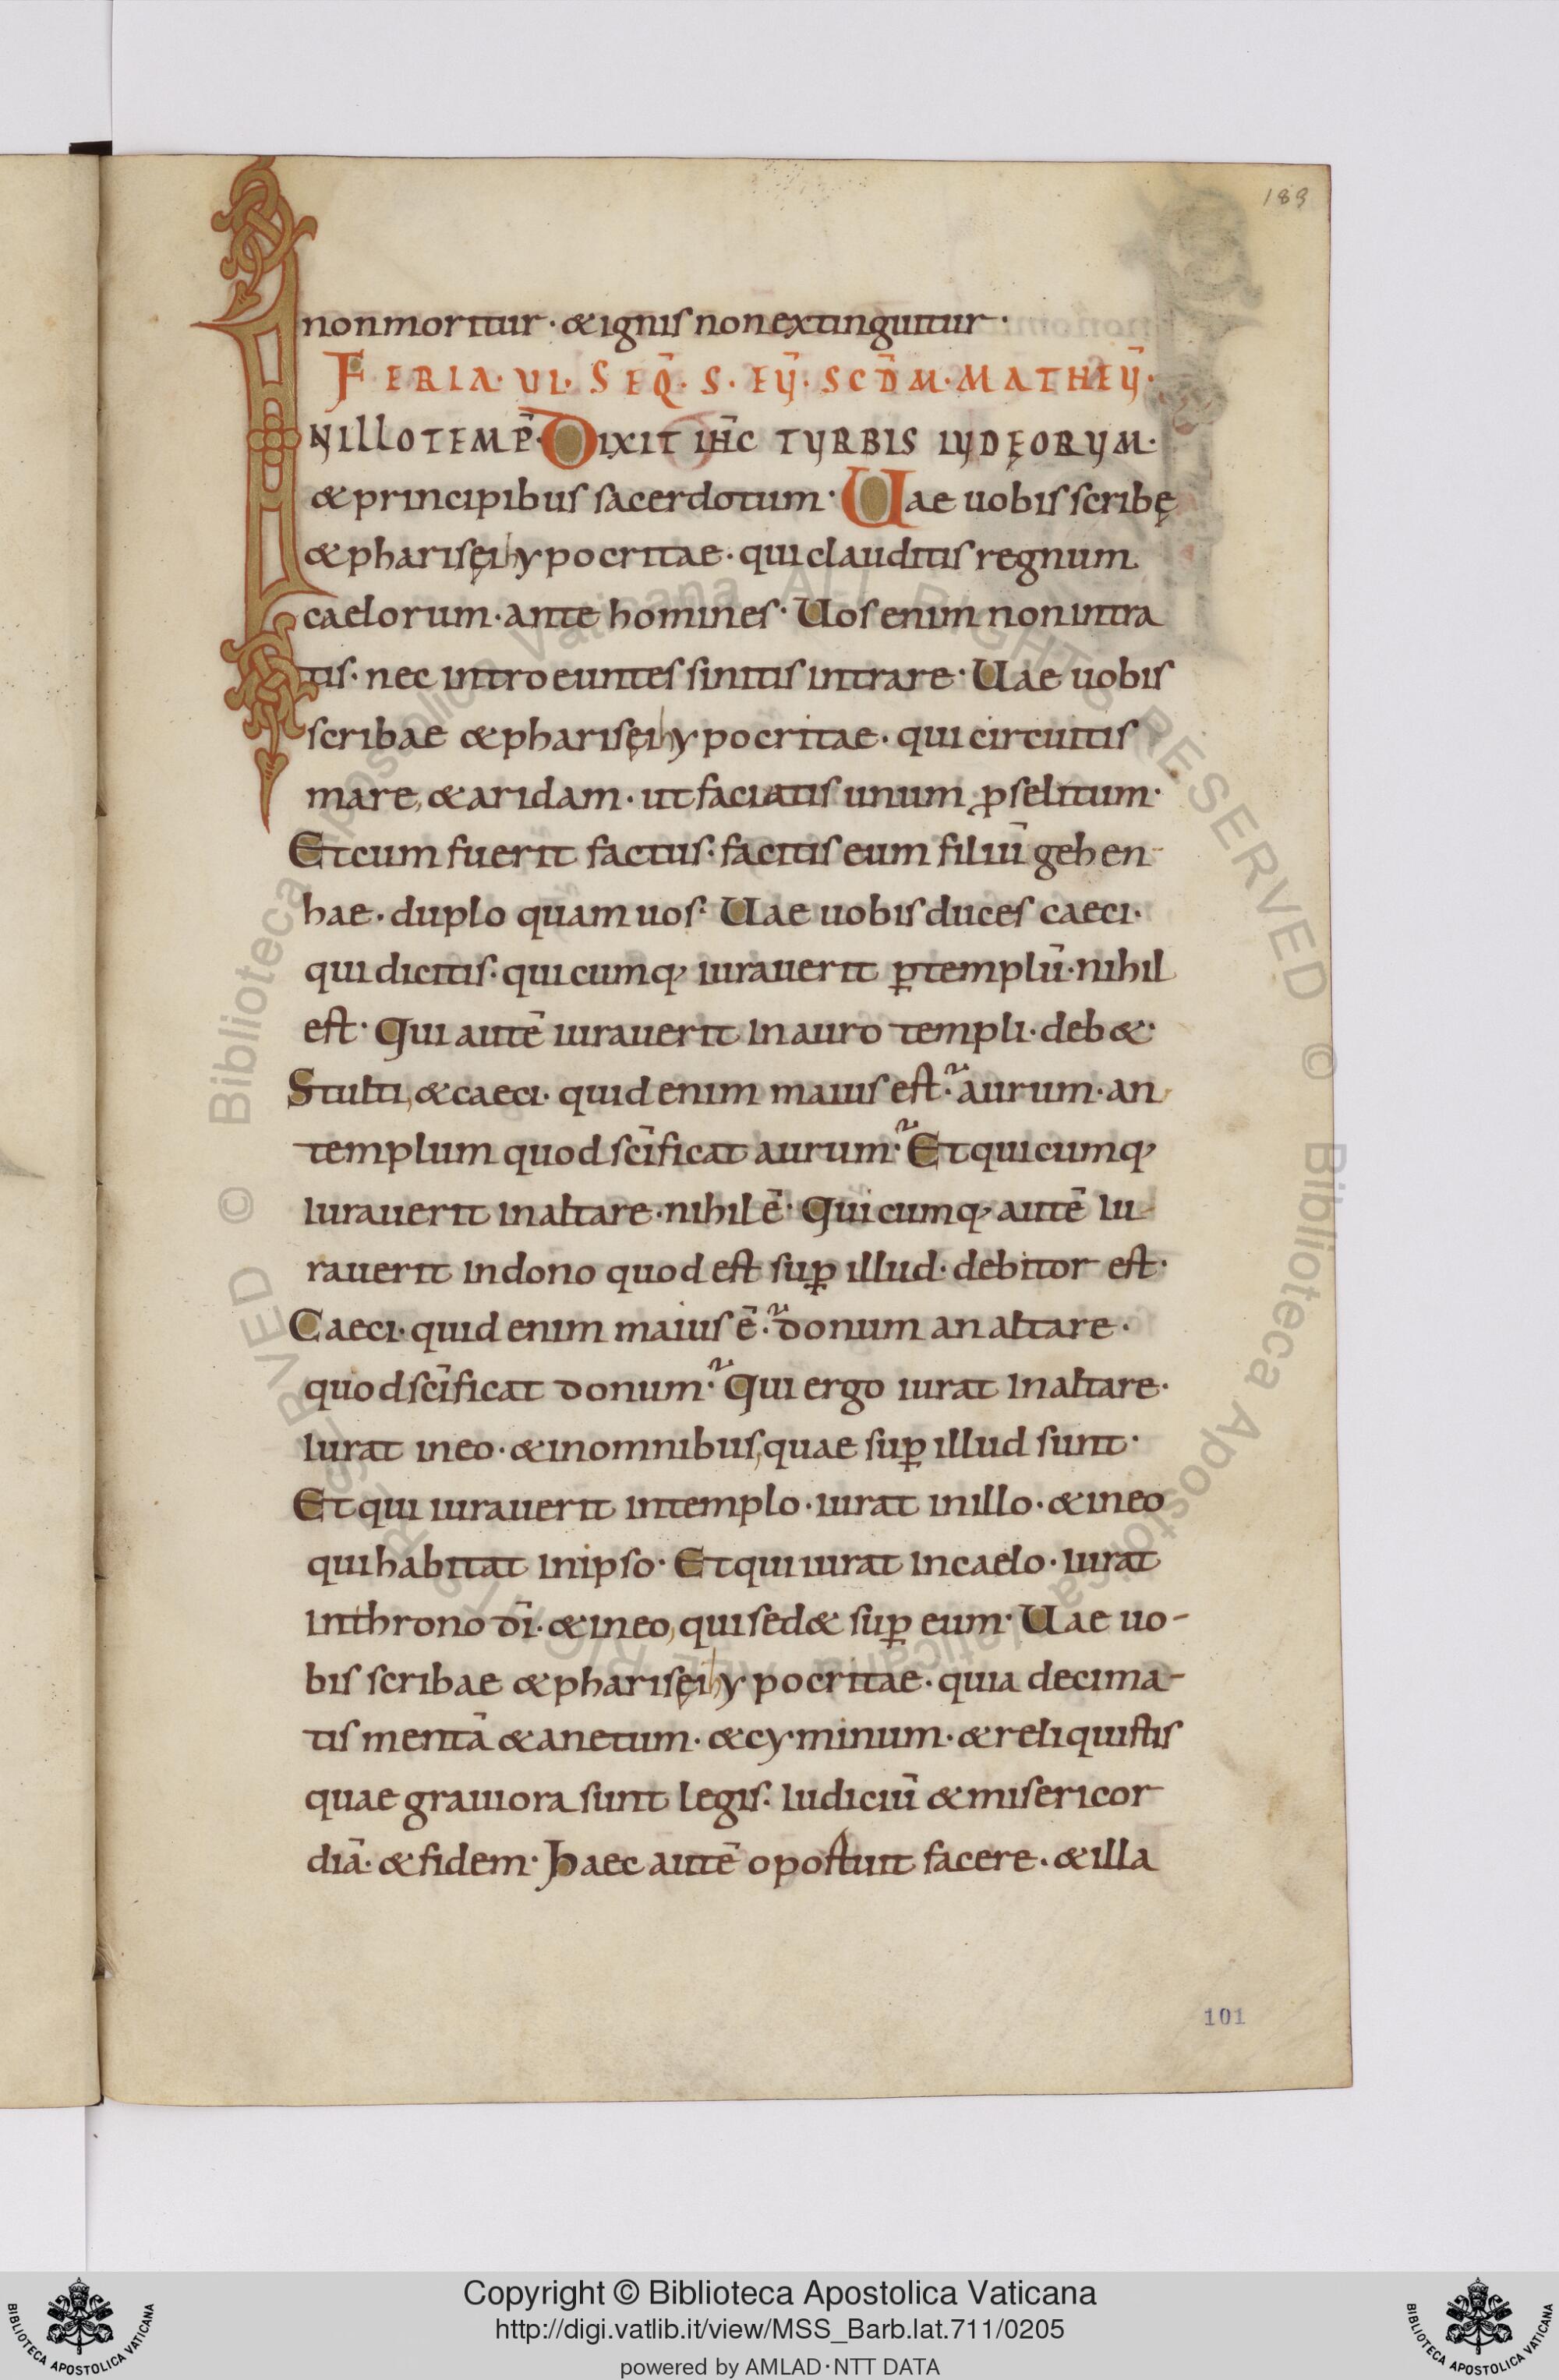 189
non moritur · & ignis non extinguitur ·
FERIA · VI · SEQ̄ · S · EŪ · SCD̄M · MATHEŪ ·
IN ILLO TEMP̄ · DIXIT IH̄C TURBIS IUDĘORUM ·
& principibus sacerdotum · Uae uobis scribę
& pharisęi hypocritae · qui clauditis regnum
caelorum · ante homines · Uos enim non intra
tis · nec introeuntes sinitis intrare · Uae uobis
scribae & pharisęi hypocritae · qui circuitis
mare, & aridam · ut faciatis unum ꝓselitum ·
Et cum fuerit factus · facitis eum filiū gehen-
hae · duplo quam uos · Uae uobis duces caeci ·
qui dicitis · quicumq, iurauerit ꝑ templū · nihil
est · Qui autē iurauerit in auro templi · deb& ·
Stulti, & caeci · quid enim maius est? aurum · an
templum quod sc̄ificat aurum? Et quicumq,
iurauerit in altare · nihil ē · Quicumq, autē iu-
rauerit in dono quod est suꝑ illud · debitor est ·
Caeci · quid enim maius ē? donum an altare ·
quod sc̄ificat donum? Qui ergo iurat in altare ·
iurat in eo · & in omnibus, quae suꝑ illud sunt ·
Et qui iurauerit in templo · iurat in illo · & in eo
qui habitat in ipso · Et qui iurat in caelo · iurat
in throno dī · & in eo, qui sed& suꝑ eum · Uae uo-
bis scribae & pharisęi hypocritae · quia decima-
tis mentā & anetum · & cyminum · & reliquistis
quae grauiora sunt legis · Iudiciū & misericor
diā · & fidem · Haec autē oportuit facere · & illa
101
Copyright © Biblioteca Apostolica Vaticana
http://digi.vatlib.it/view/MSS_Barb.lat.711/0205
powered by AMLAD·NTT DATA
BIBLIOTECA APOSTOLICA VATICANA
BIBLIOTECA APOSTOLICA VATICANA